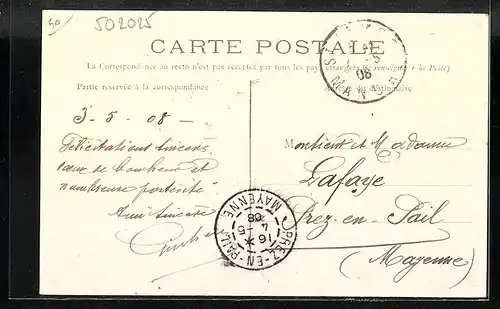 50
502025
CARTE POSTALE
(La Correspondance au recto n'est pas acceptée par tous les pays étrangers, se renseigner à la Poste)
Partie réservée à la correspondance
du destinataire
08
MANS
3-5-08-
Félicitations sincères,
vœux de bonheur et
nombreuse postérité.
Ami sincère
Monsieur et Madame
Lafaye
Prez-en-Pail
(Mayenne)
PREZ-EN-PAIL
MAYENNE
16
4 -5
08